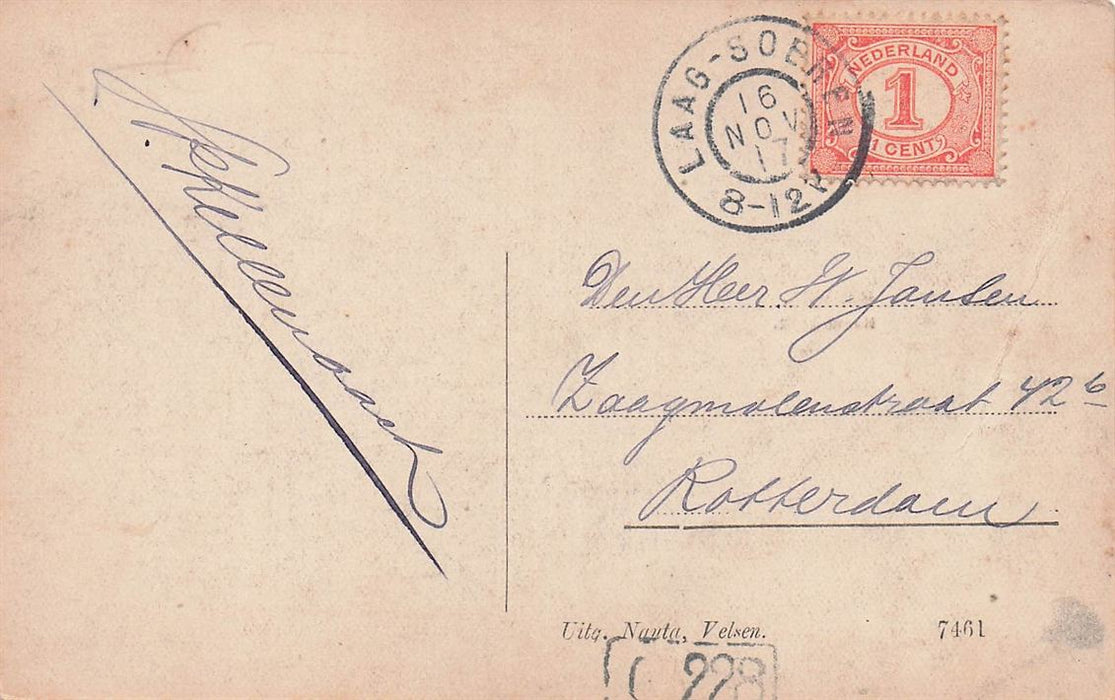 LAAG-SOEREN
16
NOV
17
8-12V
NEDERLAND
1
1 CENT
Den Heer W. Jansen
Zaagmolenstraat 42b
Rotterdam
Uitg. Nauta, Velsen.
7461
228